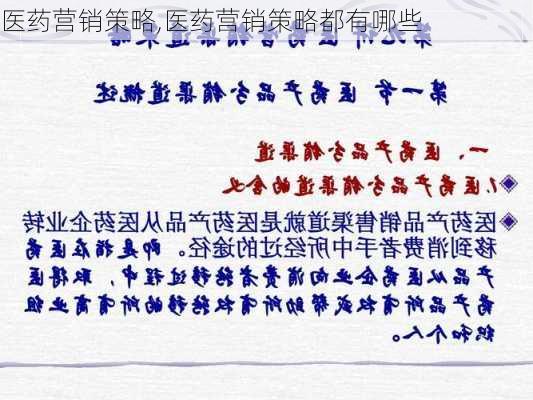 医药营销策略,医药营销策略都有哪些
第九讲 医药营销渠道策略
第一节 医药产品分销渠道概述
一、医药产品分销渠道
1.医药产品分销渠道的含义
医药产品销售渠道就是医药产品从医药企业转
移到消费者手中所经过的途径。即是指在医药
产品从医药企业向消费者转移过程中，取得医
药产品所有权或帮助所有权转移的所有商业组
织和个人。